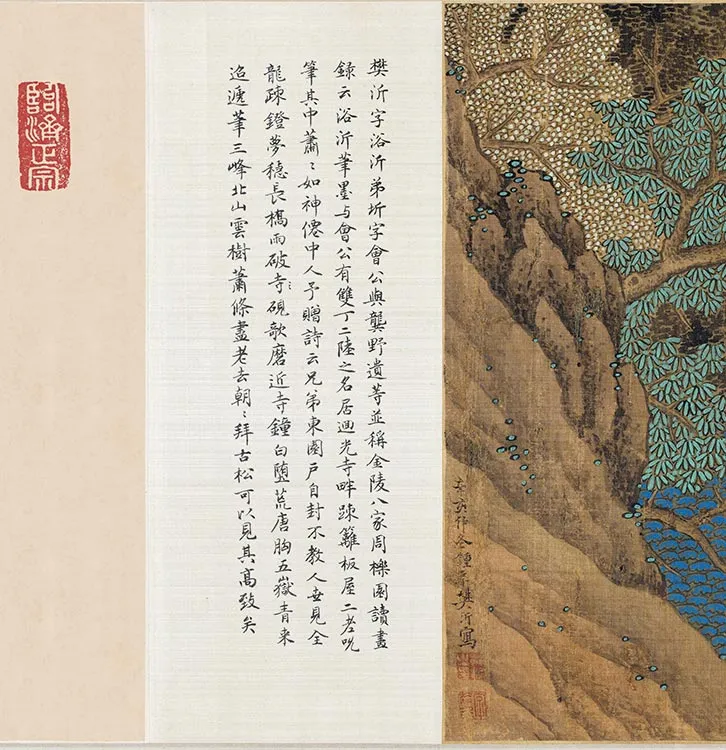 辛亥 樊沂寫
樊沂字浴沂弟圻字會公與龔野遺等並稱金陵八家周櫟園讀畫
錄云浴沂筆墨与會公有雙丁二陸之名居迴光寺畔踈籬板屋二老吮
筆其中蕭〻如神僊中人予贈詩云兄弟東園戶自封不教人世見全
龍疎鐙夢穩長橋雨破寺硯歌磨近寺鐘白堕荒唐胸五嶽青来
迢遞筆三峰北山雲樹蕭條盡老去朝〻拜古松可以見其高致矣
臨濟正宗